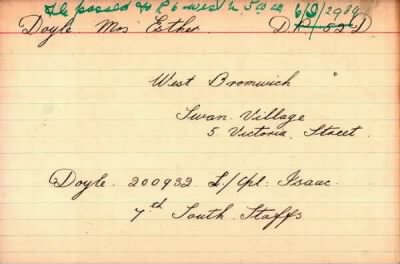 passed to P6 west 2.
Doyle Mrs Esther D
West Bromwich
Swan Village
5 Victoria Street.
Doyle. 200932 L/Cpl. Isaac.
7th South Staffs